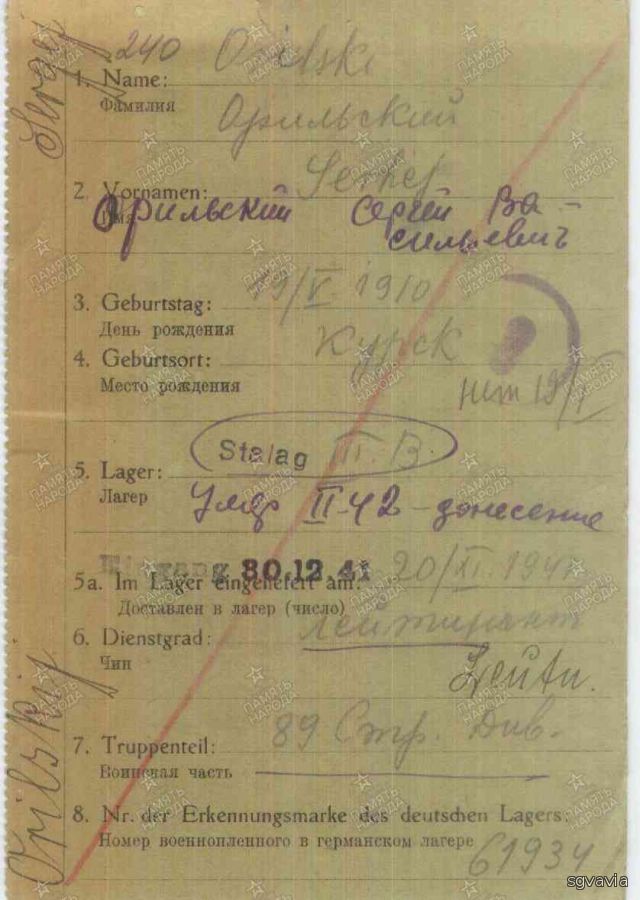 240 Orilski
1. Name:
Фамилия
Орильский
Serhej
2. Vornamen:
Имя
Орильский Сергей Ва-
сильевич
3. Geburtstag: 19/V 1910
День рождения
4. Geburtsort: Курск
Место рождения
5. Lager: Stalag III. B.
Лагер
Умер II-42 - донесение
Eingang 30.12.41
5a. Im Lager eingeliefert am: 20/XI. 1941
Доставлен в лагер (число)
6. Dienstgrad: лейтинант
Чин
Leutn.
7. Truppenteil: 89 Стр. Див.
Воинская часть
8. Nr. der Erkennungsmarke des deutschen Lagers:
Номер военнопленного в германском лагере
61934
Orilskij Sergej
ПАМЯТЬ
НАРОДА
sgvavia